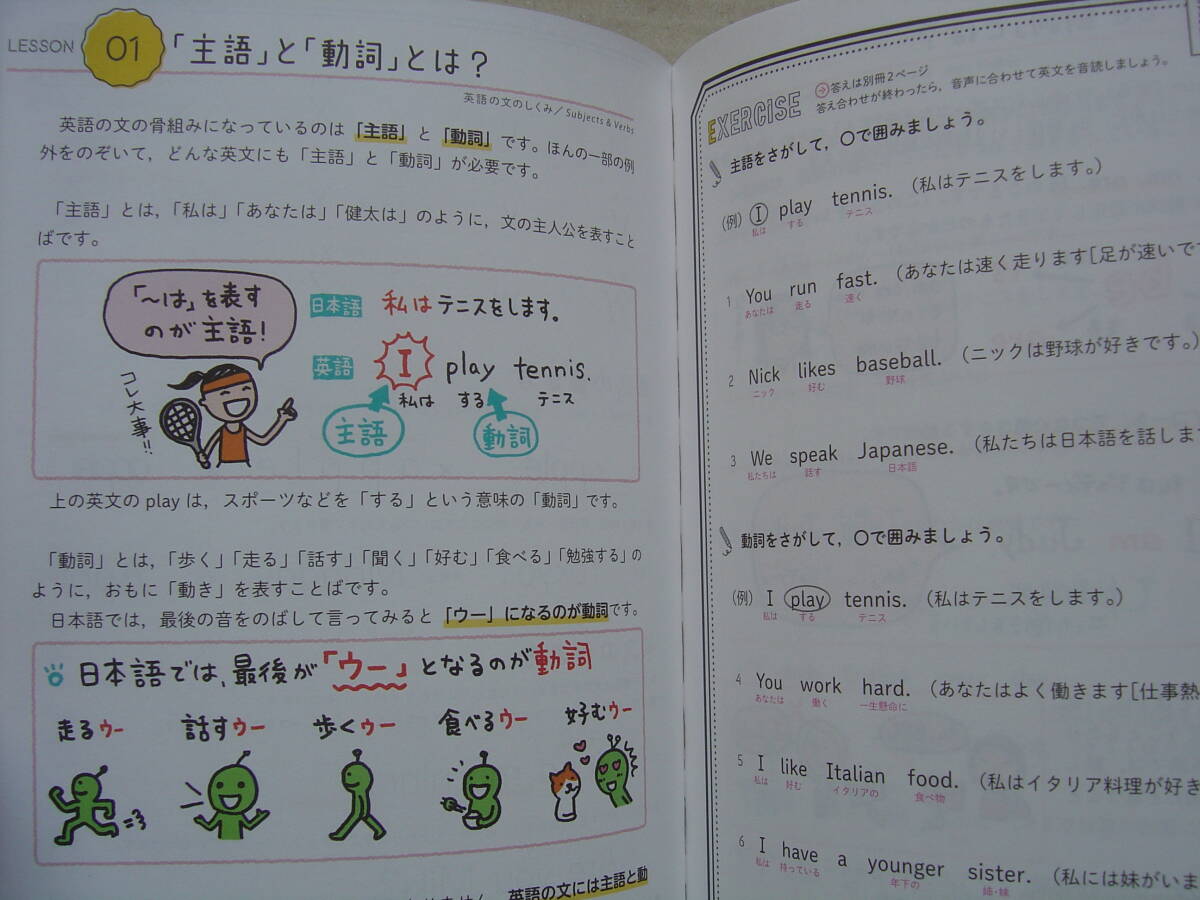 LESSON 01 「主語」と「動詞」とは？
英語の文のしくみ／Subjects & Verbs
英語の文の骨組みになっているのは「主語」と「動詞」です。ほんの一部の例
外をのぞいて，どんな英文にも「主語」と「動詞」が必要です。
「主語」とは，「私は」「あなたは」「健太は」のように，文の主人公を表すこと
ばです。
「〜は」を表す
のが主語！
コレ大事!!
日本語 私はテニスをします。
英語 I play tennis.
私は する テニス
主語 動詞
上の英文の play は，スポーツなどを「する」という意味の「動詞」です。
「動詞」とは，「歩く」「走る」「話す」「聞く」「好む」「食べる」「勉強する」の
ように，おもに「動き」を表すことばです。
日本語では，最後の音をのばして言ってみると「ウー」になるのが動詞です。
日本語では，最後が「ウー」となるのが動詞
走るゥー 話すゥー 歩くゥー 食べるゥー 好むゥー
英語の文には主語と動
EXERCISE
答えは別冊2ページ
答え合わせが終わったら，音声に合わせて英文を音読しましょう。
主語をさがして，○で囲みましょう。
(例) I play tennis.（私はテニスをします。）
私は する テニス
1 You run fast.（あなたは速く走ります[足が速いで
あなたは 走る 速く
2 Nick likes baseball.（ニックは野球が好きです。）
ニック 好む 野球
3 We speak Japanese.（私たちは日本語を話しま
私たちは 話す 日本語
動詞をさがして，○で囲みましょう。
(例) I play tennis.（私はテニスをします。）
私は する テニス
4 You work hard.（あなたはよく働きます[仕事熱
あなたは 働く 一生懸命に
5 I like Italian food.（私はイタリア料理が好き
私は 好む イタリアの 食べ物
6 I have a younger sister.（私には妹がいま
私は 持っている 年下の 姉・妹